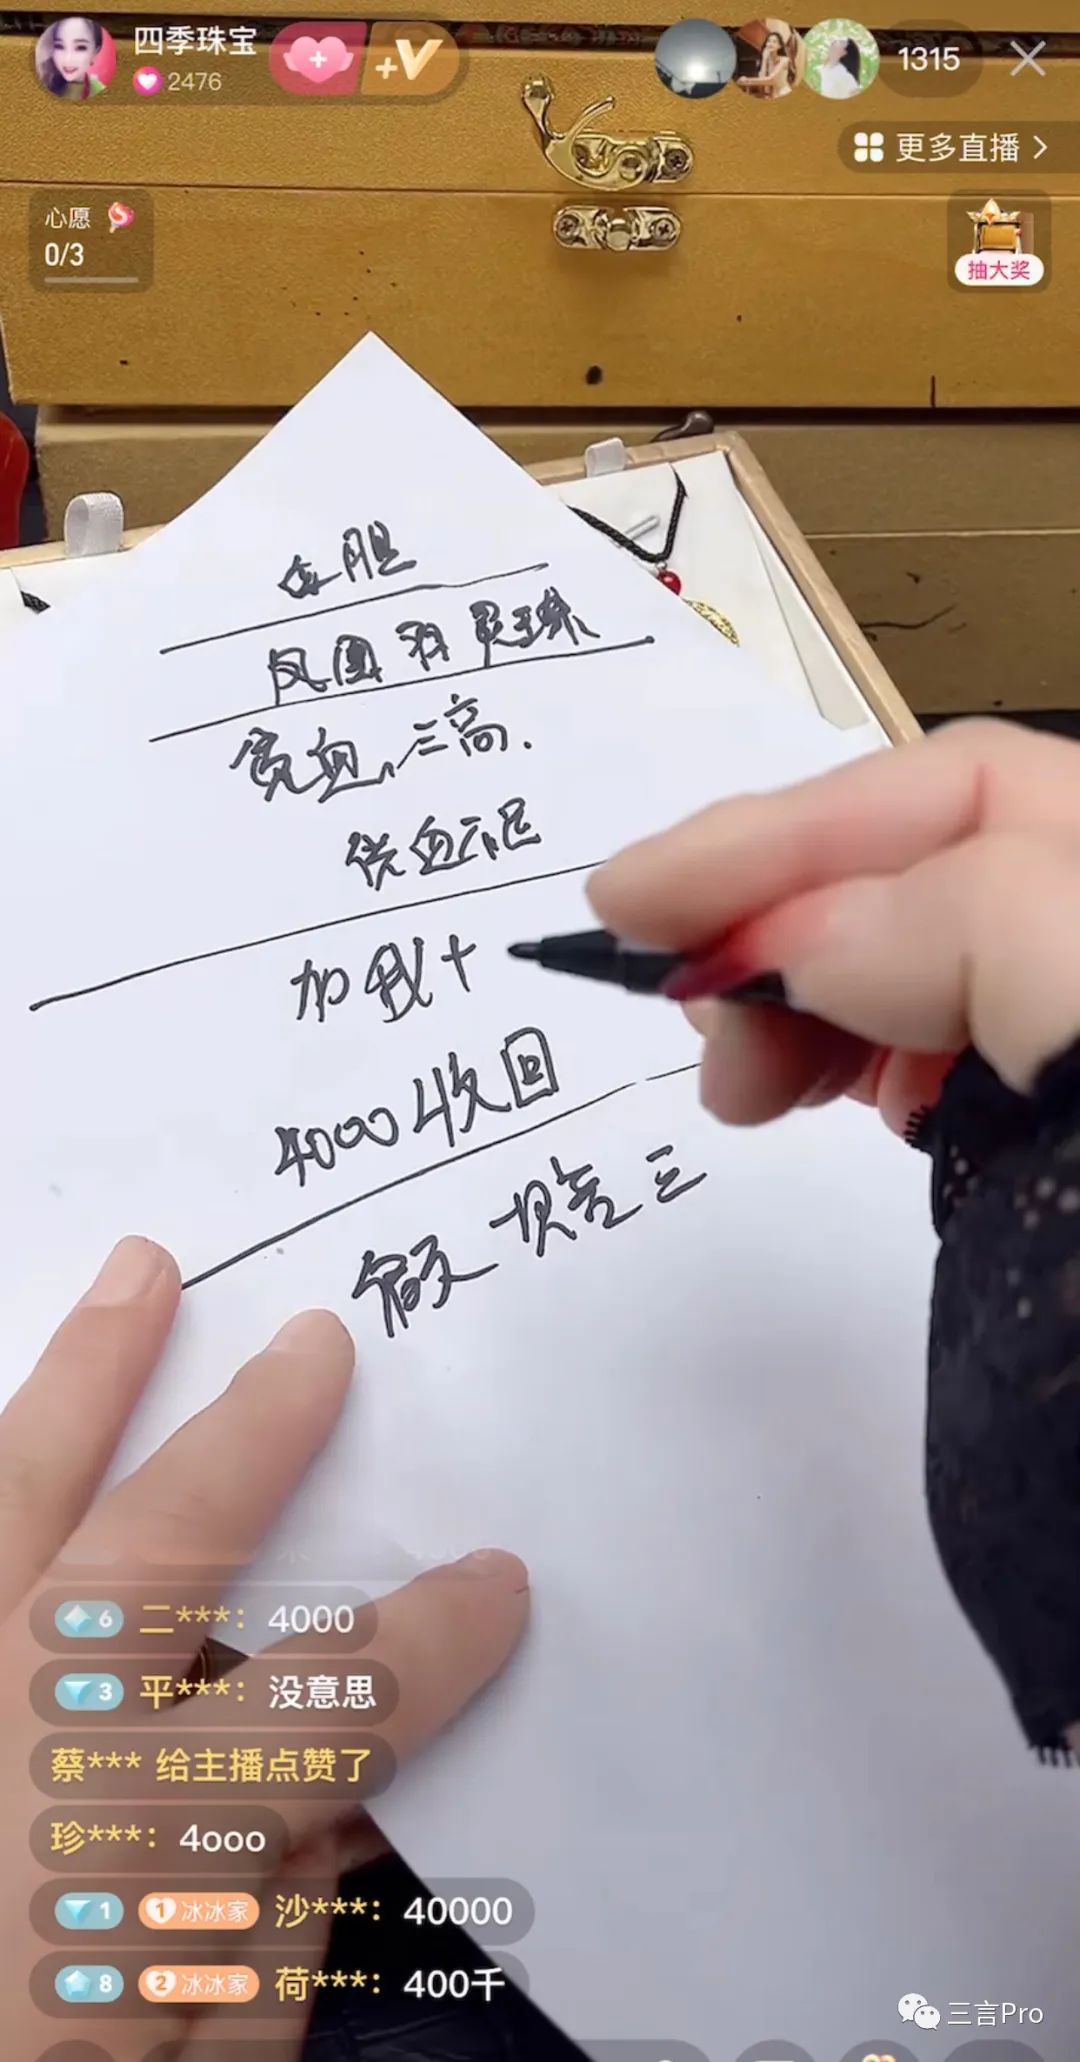 四季珠宝
2476
+V
1315
更多直播
心愿
0/3
抽大奖
胆
三高.
供血不足
加我+
4000收回
三
6 二***: 4000
3 平***: 没意思
蔡*** 给主播点赞了
珍***: 4ooo
1 1 冰冰家 沙***: 40000
8 2 冰冰家 荷***: 400千
三言Pro